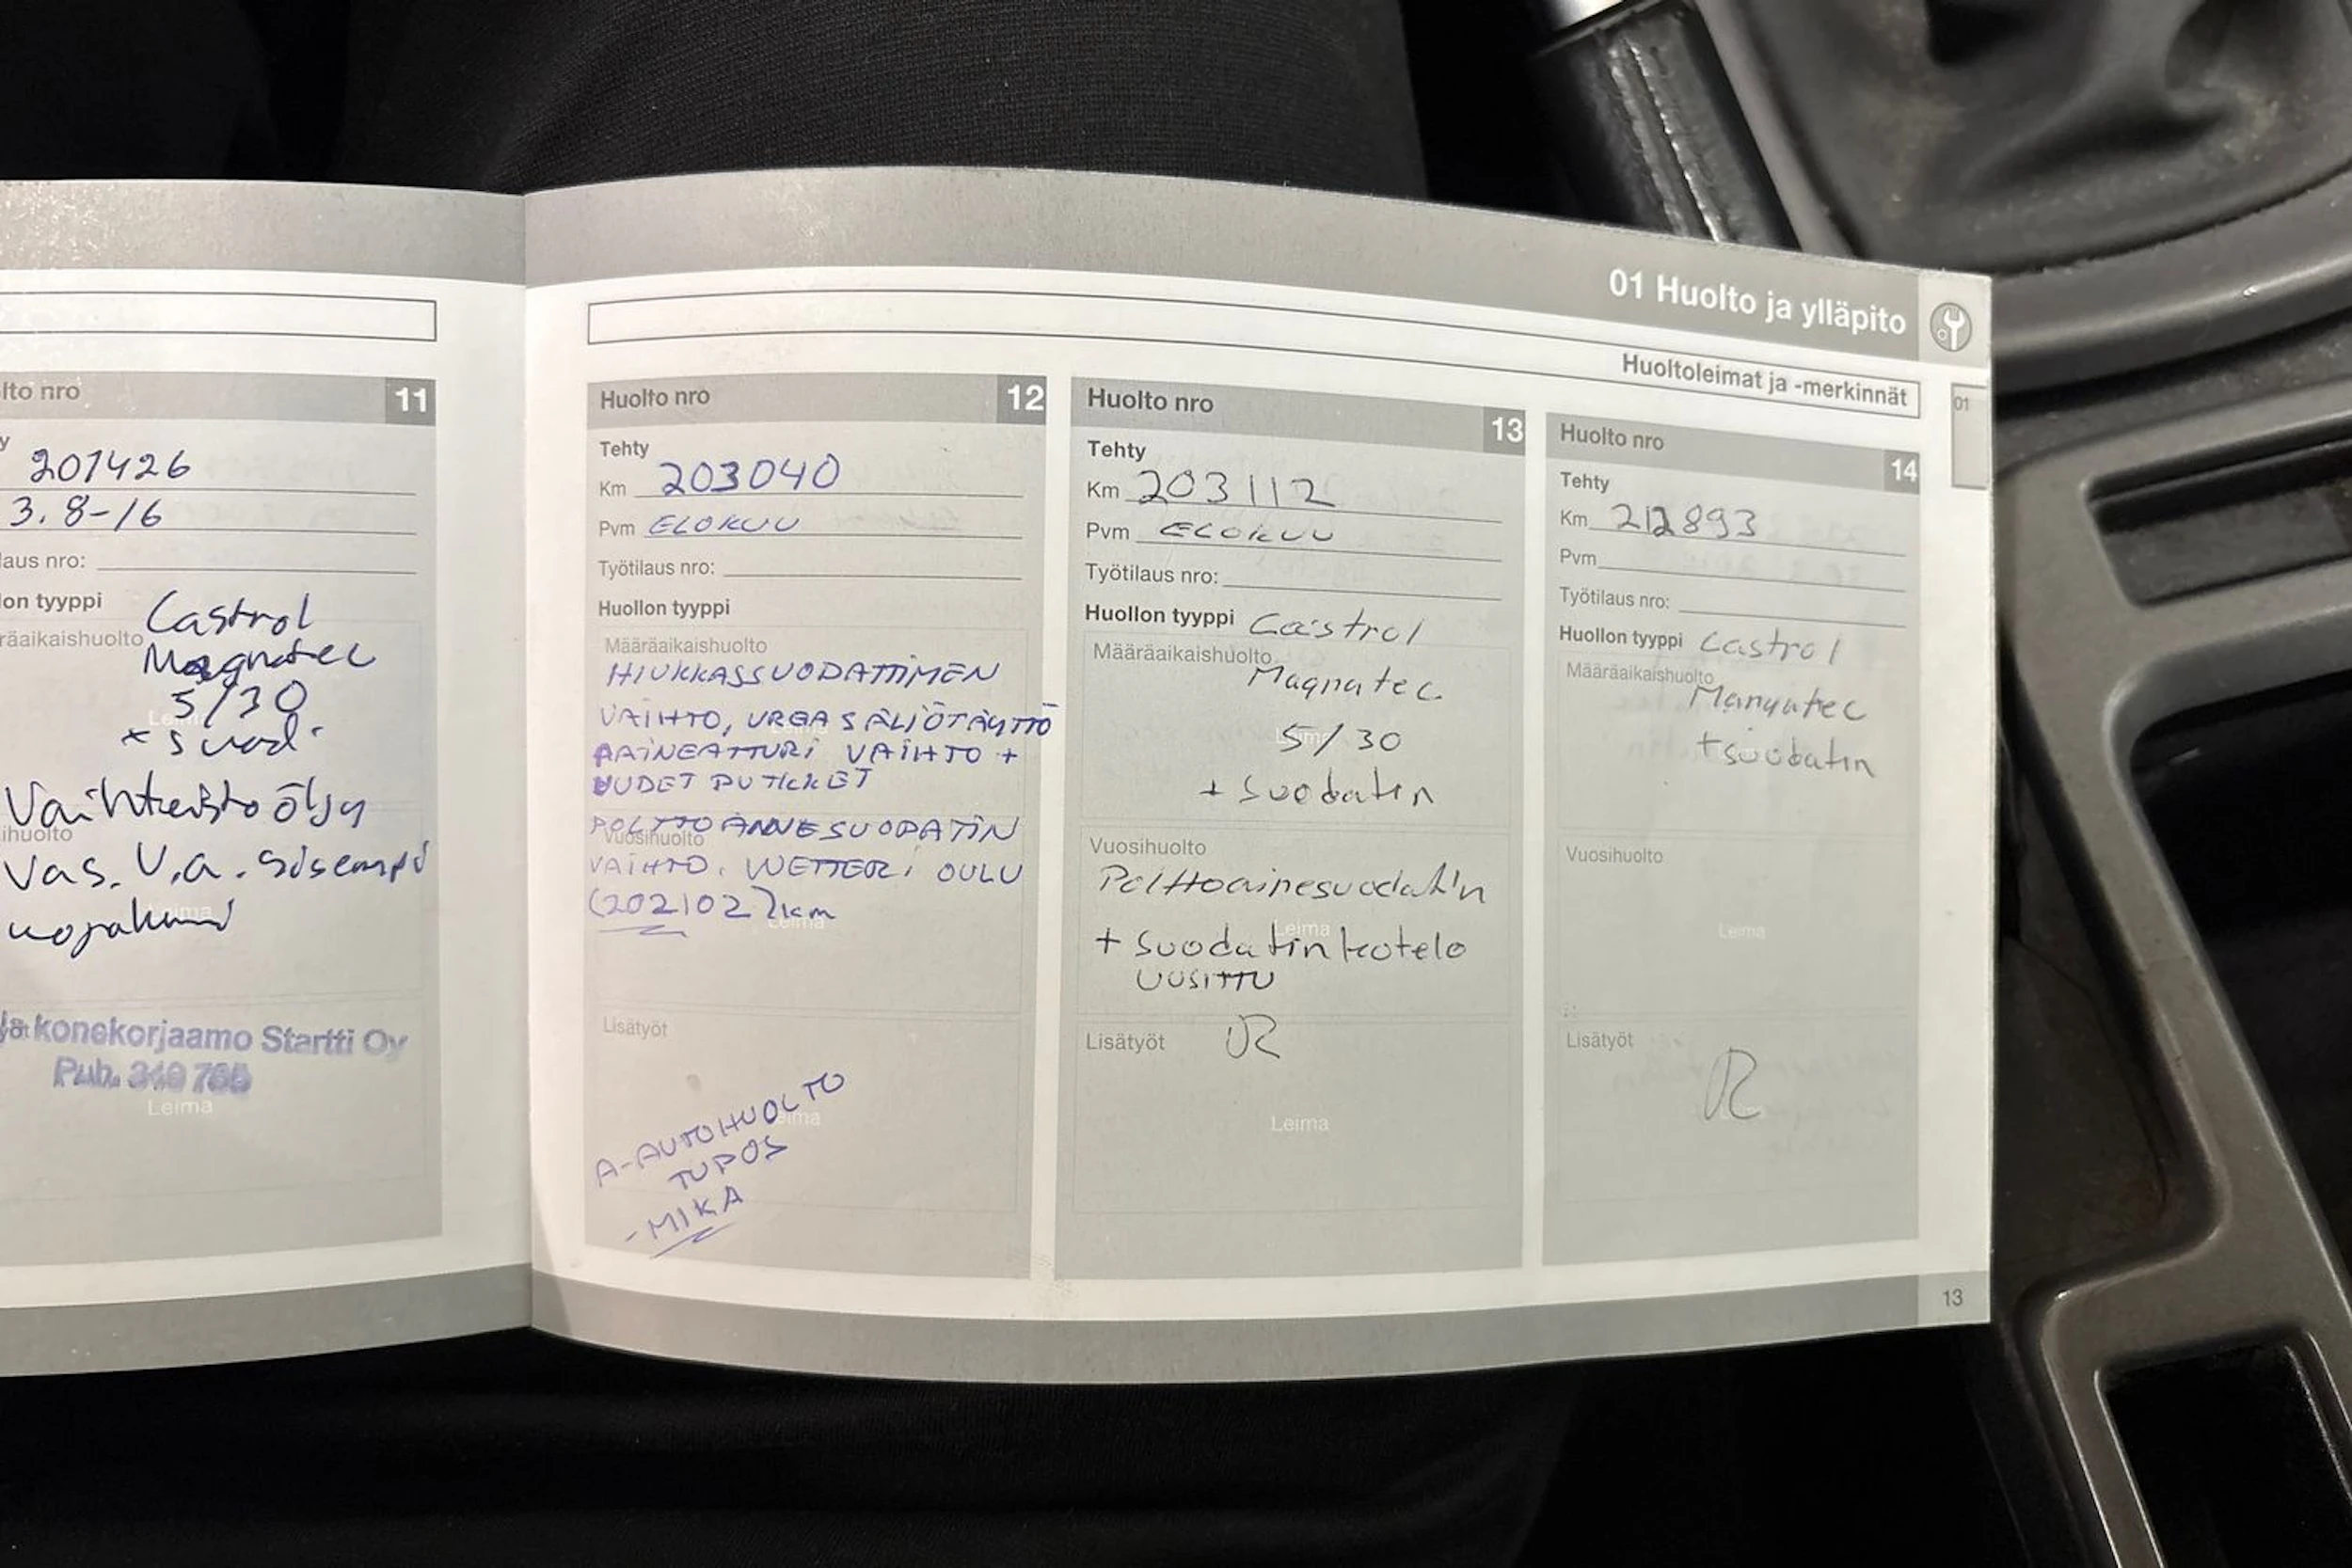 01 Huolto ja ylläpito
Huoltoleimat ja -merkinnät
01
lto nro 11
y
201426
3.8-16
laus nro:
lon tyyppi Castrol
räaikaishuolto
Magnatec
5/30
+ suod.
Vaihteistoöljy
ihuolto
Vas. V.a. sisempi
Leima
ja konekorjaamo Startti Oy
Puh. 340 765
Leima
Huolto nro 12
Tehty
Km 203040
Pvm ELOKUU
Työtilaus nro:
Huollon tyyppi
Määräaikaishuolto
HIUKKASSUODATTIMEN
VAIHTO, UREA SÄLIÖTÄYTTÖ
AAINEATTURI VAIHTO +
UUDET PUTKKET
POLTTOÄNNESUODATIN
Vuosihuolto
VAIHTO. WETTERI OULU
(202102)km
Leima
Lisätyöt
Leima
A-AUTOHUOLTO
TUPOS
-MIKA
Huolto nro 13
Tehty
Km 203112
Pvm ELOKUU
Työtilaus nro:
Huollon tyyppi Castrol
Määräaikaishuolto
Magnatec.
5/30
+ Suodatin
Vuosihuolto
Polttoainesuodatin
Leima
+ suodatinkotelo
UUSITTU
Lisätyöt
Leima
Huolto nro 14
Tehty
Km 212893
Pvm
Työtilaus nro:
Huollon tyyppi Castrol
Määräaikaishuolto
Manyatec
+suodatin
Vuosihuolto
Leima
Lisätyöt
13